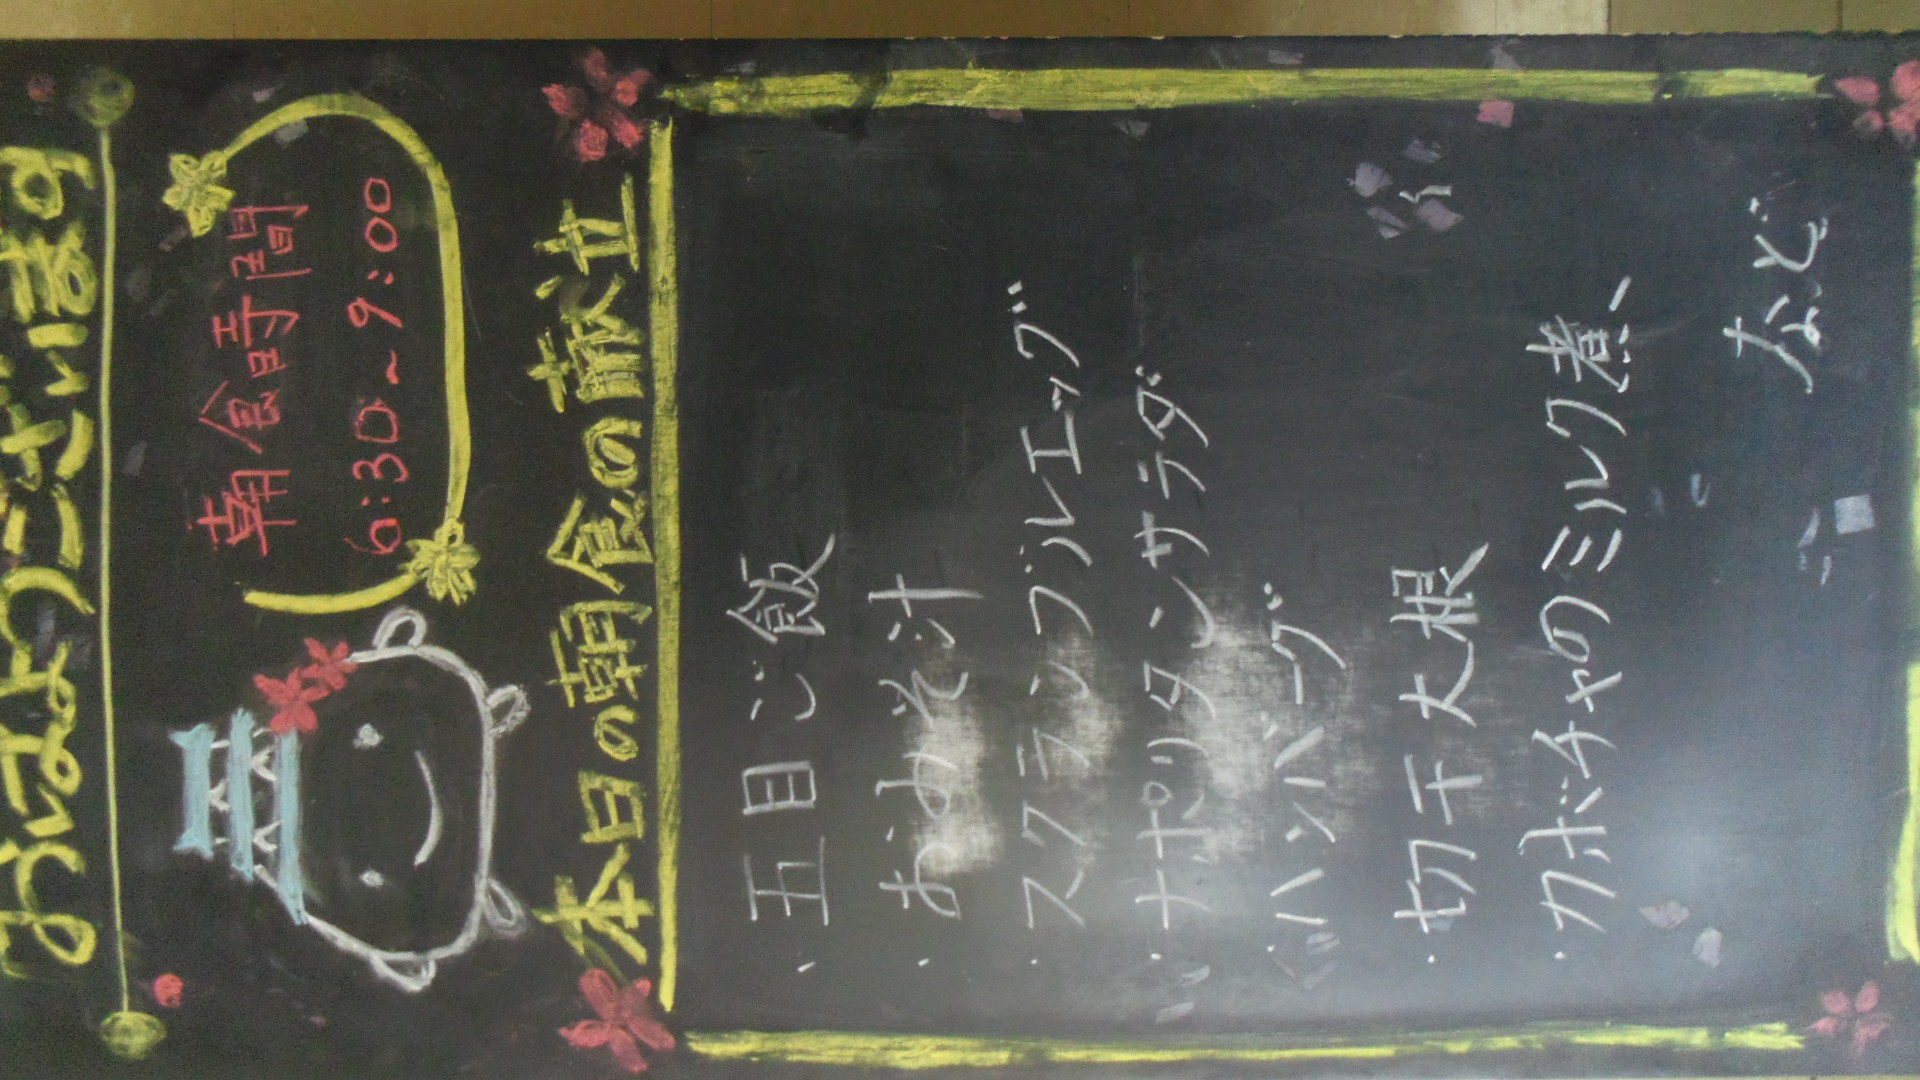 おはようございます
朝食時間
6:30~9:00
本日の朝食の献立
・五目ご飯
・おみそ汁
・スクランブルエッグ
・ナポリタンサラダ
・ハンバーグ
・切干大根
・カボチャのミルク煮、
など